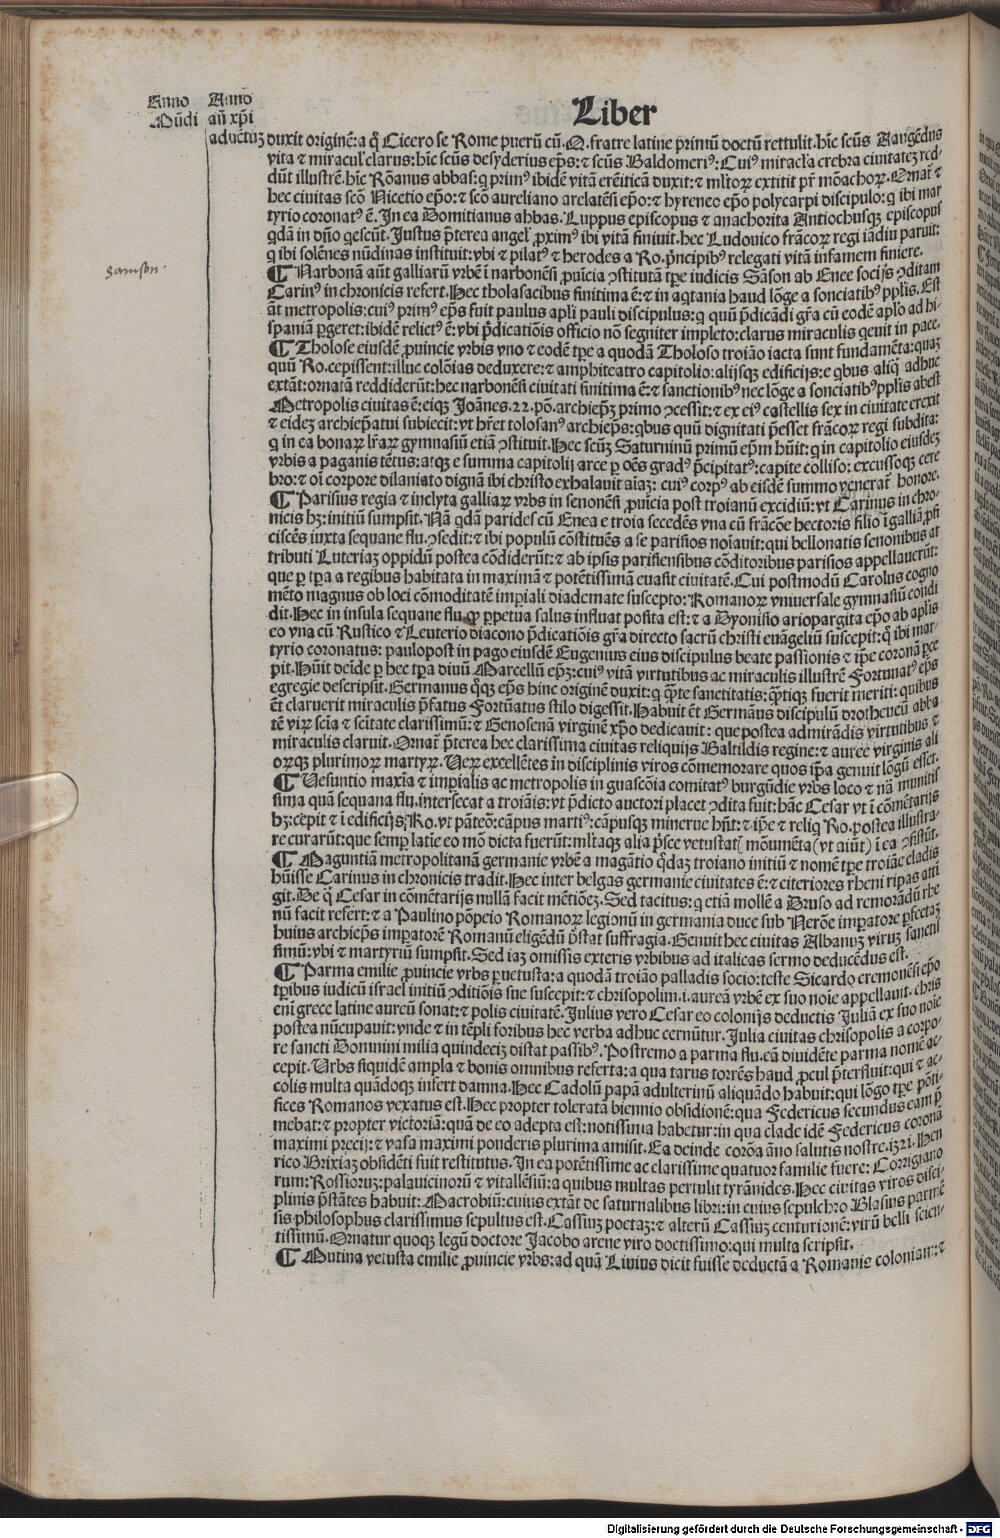 Anno Anno
Mũdi aũ xp̃i
Liber
aduẽtuꝫ duxit originẽ: a q̃ Cicero se Rome puerũ cũ .Q. fratre latine primũ doctũ rettulit. hĩc scũs Aaugẽdus
vita ⁊ miracul̃ clarus: hĩc scũs desyderius ep̃s: ⁊ scũs Baldomerꝰ: Cuiꝰ miracl̃a crebra ciuitateꝫ red-
dũt illustrẽ. hĩc Rõanus abbas: q primꝰ ibidẽ vitã erẽiticã duxit: ⁊ ml̃toꝝ extitit pr̃ mõachoꝝ. Ornat̃ ⁊
hec ciuitas scõ Nicetio ep̃o: ⁊ scõ aureliano arelatẽsi ep̃o: ⁊ hyreneo ep̃o polycarpi discipulo: q ibi mar
tyrio coronatꝰ ẽ. In ea Domitianus abbas. Luppus episcopus ⁊ anachorita Antiochusqꝫ episcopus
qdã in dño q̃escũt. Justus p̃terea angel̃ ꝓximꝰ ibi vitã finiuit. hec Ludouico frãcoꝝ regi iãdiu paruit:
q ibi solẽnes nũdinas instituit: vbi ⁊ pilatꝰ ⁊ herodes a Ro. p̃ncipibꝰ relegati vitã infamem finiere.
samson.
¶ Narbonã aũt galliarũ vrbẽ ĩ narbonẽsi ꝓuicia ꝯstitutã tp̃e iudicis Sãson ab Enee socijs ꝯditam
Carinꝰ in chronicis refert. Hec tholasacibus finitima ẽ: ⁊ in aqtania haud lõge a sonciatibꝰ pp̃lis. Est
aũt metropolis: cuiꝰ primꝰ ep̃s fuit paulus apl̃i pauli discipulus: q quũ p̃dicãdi gr̃a cũ eodẽ apl̃o ad hi-
spaniã pergeret: ibidẽ relictꝰ ẽ: vbi p̃dicatiõis officio nõ segniter impleto: clarus miraculis qeuit in pace.
¶ Tholose eiusdẽ ꝓuincie vrbis vno ⁊ eodẽ tp̃e a quodã Tholoso troiãо iacta sunt fundamẽta: quaꝫ
quũ Ro. cepissent: illuc colõias deduxere: ⁊ amphiteatro capitolio: alijsqꝫ edificijs: e qbus aliq̃ adhuc
extãt: ornatã reddiderũt: hec narbonẽsi ciuitati finitima ẽ: ⁊ sanctionibꝰ nec lõge a sonciatibꝰ pp̃lis abest
Metropolis ciuitas ẽ: eiqꝫ Joãnes .22. põ. archiep̃ꝫ primo ꝯcessit: ⁊ ex eiꝰ castellis sex in ciuitate erexit
⁊ eideꝫ archiep̃atui subiecit: vt hr̃et tolosanꝰ archiep̃s: qbus quũ dignitati p̃esset frãcoꝝ regi subdita:
q in ea bonaꝝ lr̃aꝝ gymnasiũ etiã ꝯstituit. Hec scũꝫ Saturninũ primũ ep̃m hũit: q in capitolio eiusdeꝫ
vrbis a paganis tẽtus: atqꝫ e summa capitolij arce ꝑ oẽs gradꝰ p̃cipitatꝰ: capite colliso: excussoqꝫ cere
bro: ⁊ oĩ corpore dilaniato dignã ibi christo exhalauit aĩaꝫ: cuiꝰ corpꝰ ab eisdẽ summo venerat̃ honore.
¶ Parisius regia ⁊ inclyta galliaꝝ vrbs in senonẽsi ꝓuicia post troianũ excidiũ: vt Carinus in chro-
nicis hꝫ: initiũ sumpsit. Nã qdã parides cũ Enea e troia secedẽs vna cũ frãcõe hectoris filio ĩ galliã ꝓfi
ciscẽs iuxta sequane flu. ꝯsedit: ⁊ ibi populũ cõstituẽs a se parisios noĩauit: qui bellonatis senonibus at
tributi Luteriaꝫ oppidũ postea cõdiderũt: ⁊ ab ipsis parisiensibus cõditoribus parisios appellauerũt:
que ꝑ tp̃a a regibus habitata in maximã ⁊ potẽtissimã euasit ciuitatẽ. Cui postmodũ Carolus cogno
mẽto magnus ob loci cõmoditatẽ imp̃iali diademate suscepto: Romanoꝝ vniuersale gymnasiũ condi
dit. Hec in insula sequane flu. ꝙ ꝑpetua salus influat posita est: ⁊ a Dyonisio ariopargita ep̃o ab apl̃is
eo vna cũ Rustico ⁊ Leuterio diacono p̃dicatiõis gr̃a directo sacrũ christi euãgeliũ suscepit: q̃ ibi mar-
tyrio coronatus: paulopost in pago eiusdẽ Eugenius eius discipulus beate passionis ⁊ ip̃e coronã ꝑce
pit. Hũit deĩde ꝑ hec tp̃a diuũ Marcellũ ep̃ꝫ: cuiꝰ vitã virtutibus ac miraculis illustrẽ Fortunatꝰ ep̃s
egregie descripsit. Germanus q̃qꝫ ep̃s hinc originẽ duxit: q q̃te sanctitatis: q̃tiqꝫ fuerit meriti: quibus
ẽt claruerit miraculis p̃fatus Fortũatus stilo digessit. Habuit ẽt Germãus discipulũ drotheueũ abba
tẽ virꝫ scĩa ⁊ scĩtate clarissimũ: ⁊ Genosenã virginẽ xp̃o dedicauit: que postea admirãdis virtutibus ⁊
miraculis claruit. Ornat̃ p̃terea hec clarissima ciuitas reliquijs Baltildis regine: ⁊ auree virginis ali
orqꝫ plurimoꝝ martyꝝ. Ueꝝ excellẽtes in disciplinis viros cõmemorare quos ip̃a genuit lõgũ esset.
¶ Uesuntio maxĩa ⁊ imp̃ialis ac metropolis in guascõia comitatꝰ burgũdie vrbs loco ⁊ nã munitis
sima quã sequana flu. intersecat a troiãis: vt p̃dicto auctori placet ꝯdita fuit: hãc Cesar vt ĩ cõmẽtarijs
hꝫ: cepit ⁊ ĩ edificijs. Ro. vt pãteõ: cãpus martiꝰ: cãpusqꝫ minerue hñt: ⁊ ip̃e ⁊ reliq Ro. postea illustra-
re curarũt: que semꝑ latie eo mõ dicta fuerũt: ml̃taqꝫ alia p̃sce vetustat̃ mõumẽta (vt aiũt) ĩ ea ꝯsistũt.
¶ Maguntiã metropolitanã germanie vrbẽ a magãtio q̃daꝫ troiano initiũ ⁊ nomẽ tp̃e troiãe cladis
hũisse Carinus in chronicis tradit. Hec inter belgas germanie ciuitates ẽ: ⁊ citeriores rheni ripas atti
git. De q̃ Cesar in cõmẽtarijs nullã facit mẽtiõeꝫ. Sed tacitus: q etiã mollẽ a Druso ad remorãdũ rhe
nũ facit refert: ⁊ a Paulino põpeio Romanoꝝ legionũ in germania duce sub Nerõe imꝑatore ꝑfectaꝫ
huius archiep̃s imꝑatorẽ Romanũ eligẽdũ p̃stat suffragia. Genuit hec ciuitas Albanuꝫ viruꝫ sanctis
simũ: vbi ⁊ martyriũ sumpsit. Sed iaꝫ omissis exteris vrbibus ad italicas sermo deducẽdus est.
¶ Parma emilie ꝓuincie vrbs ꝑuetusta: a quodã troiãо palladis socio: teste Sicardo cremonẽsi ep̃o
tp̃ibus iudicũ israel initiũ ꝯditiõis sue suscepit: ⁊ chrisopolim .i. aureã vrbẽ ex suo noĩe appellauit. chris
enĩ grece latine aureũ sonat: ⁊ polis ciuitatẽ. Julius vero Cesar eo colonijs deductis Juliã ex suo noĩe
postea nũcupauit: vnde ⁊ in tẽpli foribus hec verba adhuc cernũtur. Julia ciuitas chrisopolis a corpo-
re sancti Domnini milia quindecĩꝫ distat passibꝰ. Postremo a parma flu. eã diuidẽte parma nomẽ ac-
cepit. Urbs siquidẽ ampla ⁊ bonis omnibus referta: a qua tarus torrẽs haud ꝓcul p̃terfluit: qui ⁊ ac-
colis multa quãdoqꝫ infert damna. Hec Cadolũ papã adulterinũ aliquãdo habuit: qui lõgo tp̃e põti-
fices Romanos vexatus est. Hec propter toleratã biennio obsidionẽ: qua Federicus secundus eam p̃
mebat: ⁊ propter victoriã: quã de eo adepta est: notissima habetur: in qua clade idẽ Federicus coronã
maximi precij: ⁊ vasa maximi ponderis plurima amisit. Ea deinde corõa ãno salutis nostre. 1321. Hen
rico Brixiaꝫ obsidẽti fuit restitutus. In ea potẽtissime ac clarissime quatuor familie fuere: Corrigiano
rum: Rossioruꝫ: palauicinorũ ⁊ vitallẽsiũ: a quibus multas pertulit tyrãnides. Hec ciuitas viros disci-
plinis p̃stãtes habuit: Macrobiũ: cuius extãt de saturnalibus libri: in cuius sepulchro Blasius parmẽ
sis philosophus clarissimus sepultus est. Cassiuꝫ poetaꝫ: ⁊ alterũ Cassiuꝫ centurionẽ: virũ belli scien-
tissimũ. Ornatur quoqꝫ legũ doctore Jacobo arene viro doctissimo: qui multa scripsit.
¶ Mutina vetusta emilie ꝓuincie vrbs: ad quã Liuius dicit fuisse deductã a Romanis coloniam: ⁊
Digitalisierung gefördert durch die Deutsche Forschungsgemeinschaft - DFG